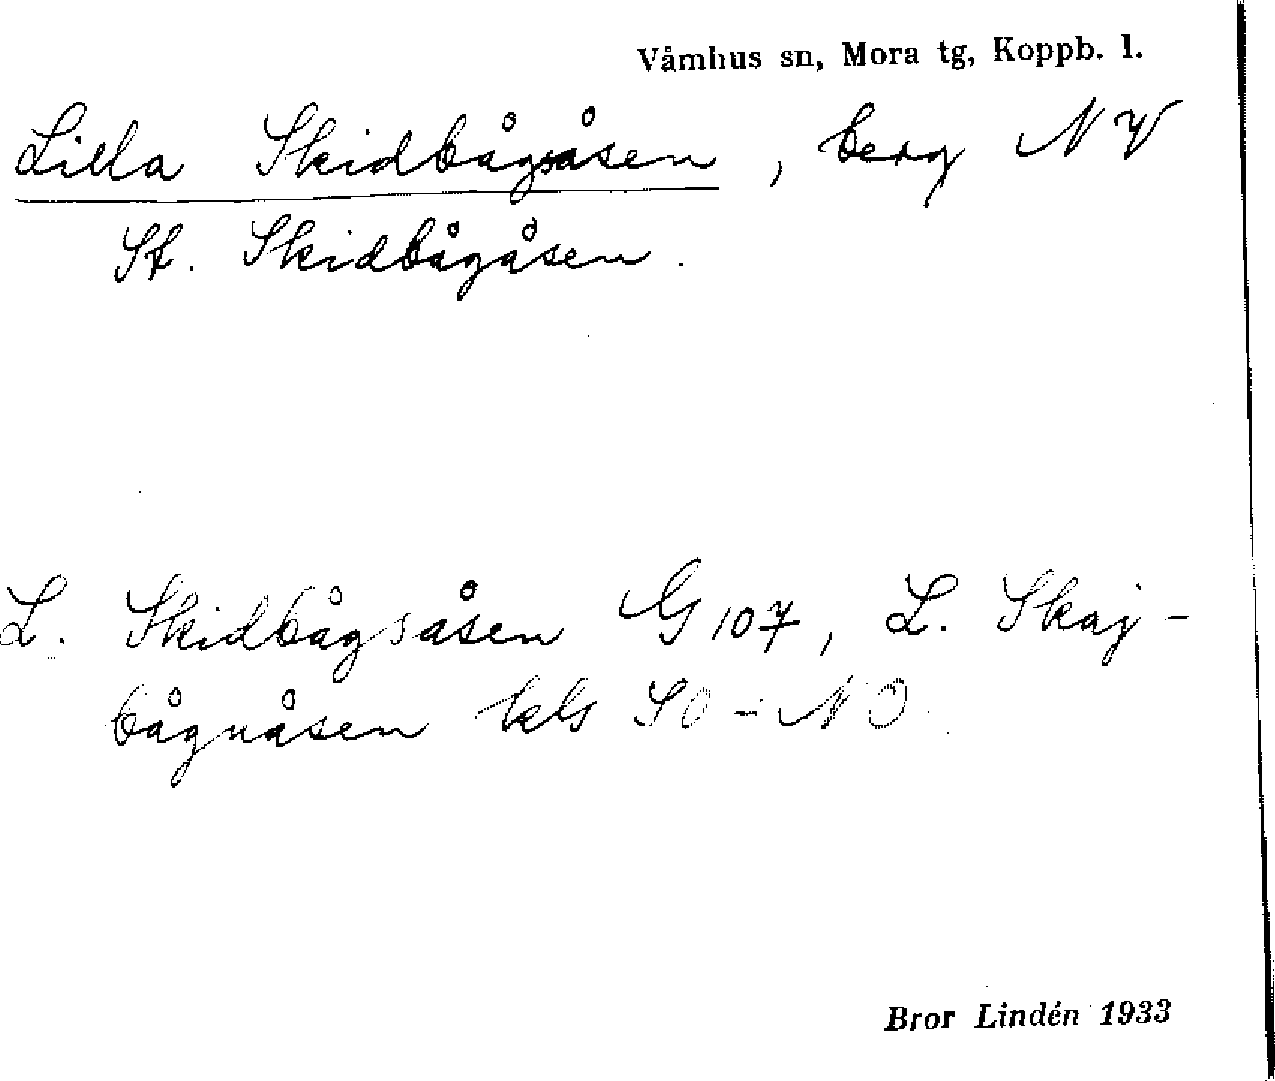 Våmhus sn, Mora tg, Koppb. l.
Lilla Skidbågsåsen, berg NV
St. Skidbågåsen.
L. Skidbågsåsen G 107, L. Skaj-
bågnåsen kbl SO-NO.
Bror Lindén 1933